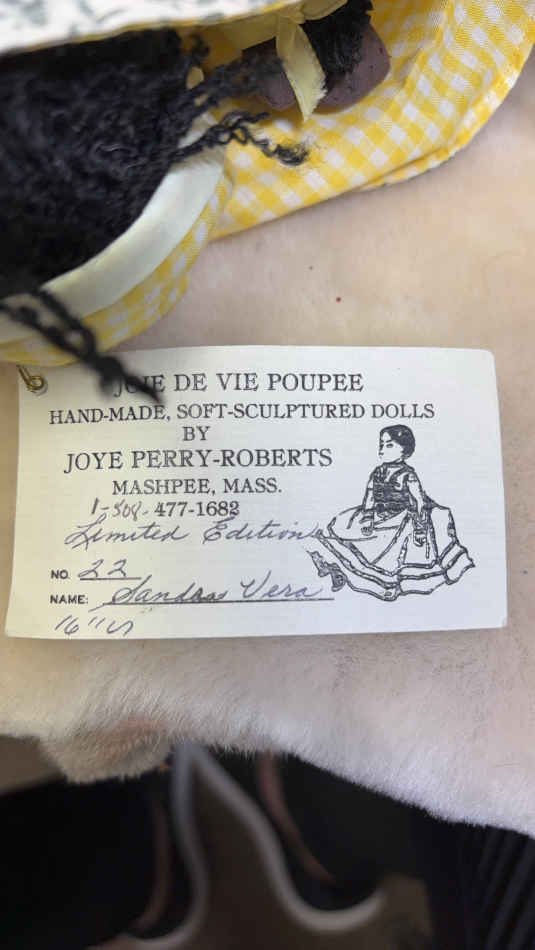 JOIE DE VIE POUPEE
HAND-MADE, SOFT-SCULPTURED DOLLS
BY
JOYE PERRY-ROBERTS
MASHPEE, MASS.
1-508-477-1682
Limited Edition
NO. 22
NAME: Vera
16"